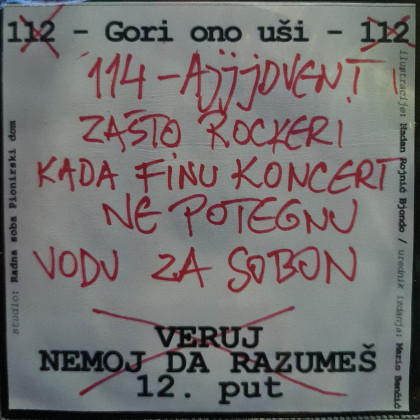 112 - Gori ono uši - 112
114 - AJJJDVENT
ZAŠTO ROCKERI
KADA FINU KONCERT
NE POTEGNU
VODU ZA SOBON
VERUJ
NEMOJ DA RAZUMEŠ
12. put
studio: Radna soba Pionirski dom
ilustracije: Radan Rojnić Bjondo / urednik izdanja: Mario Benčić